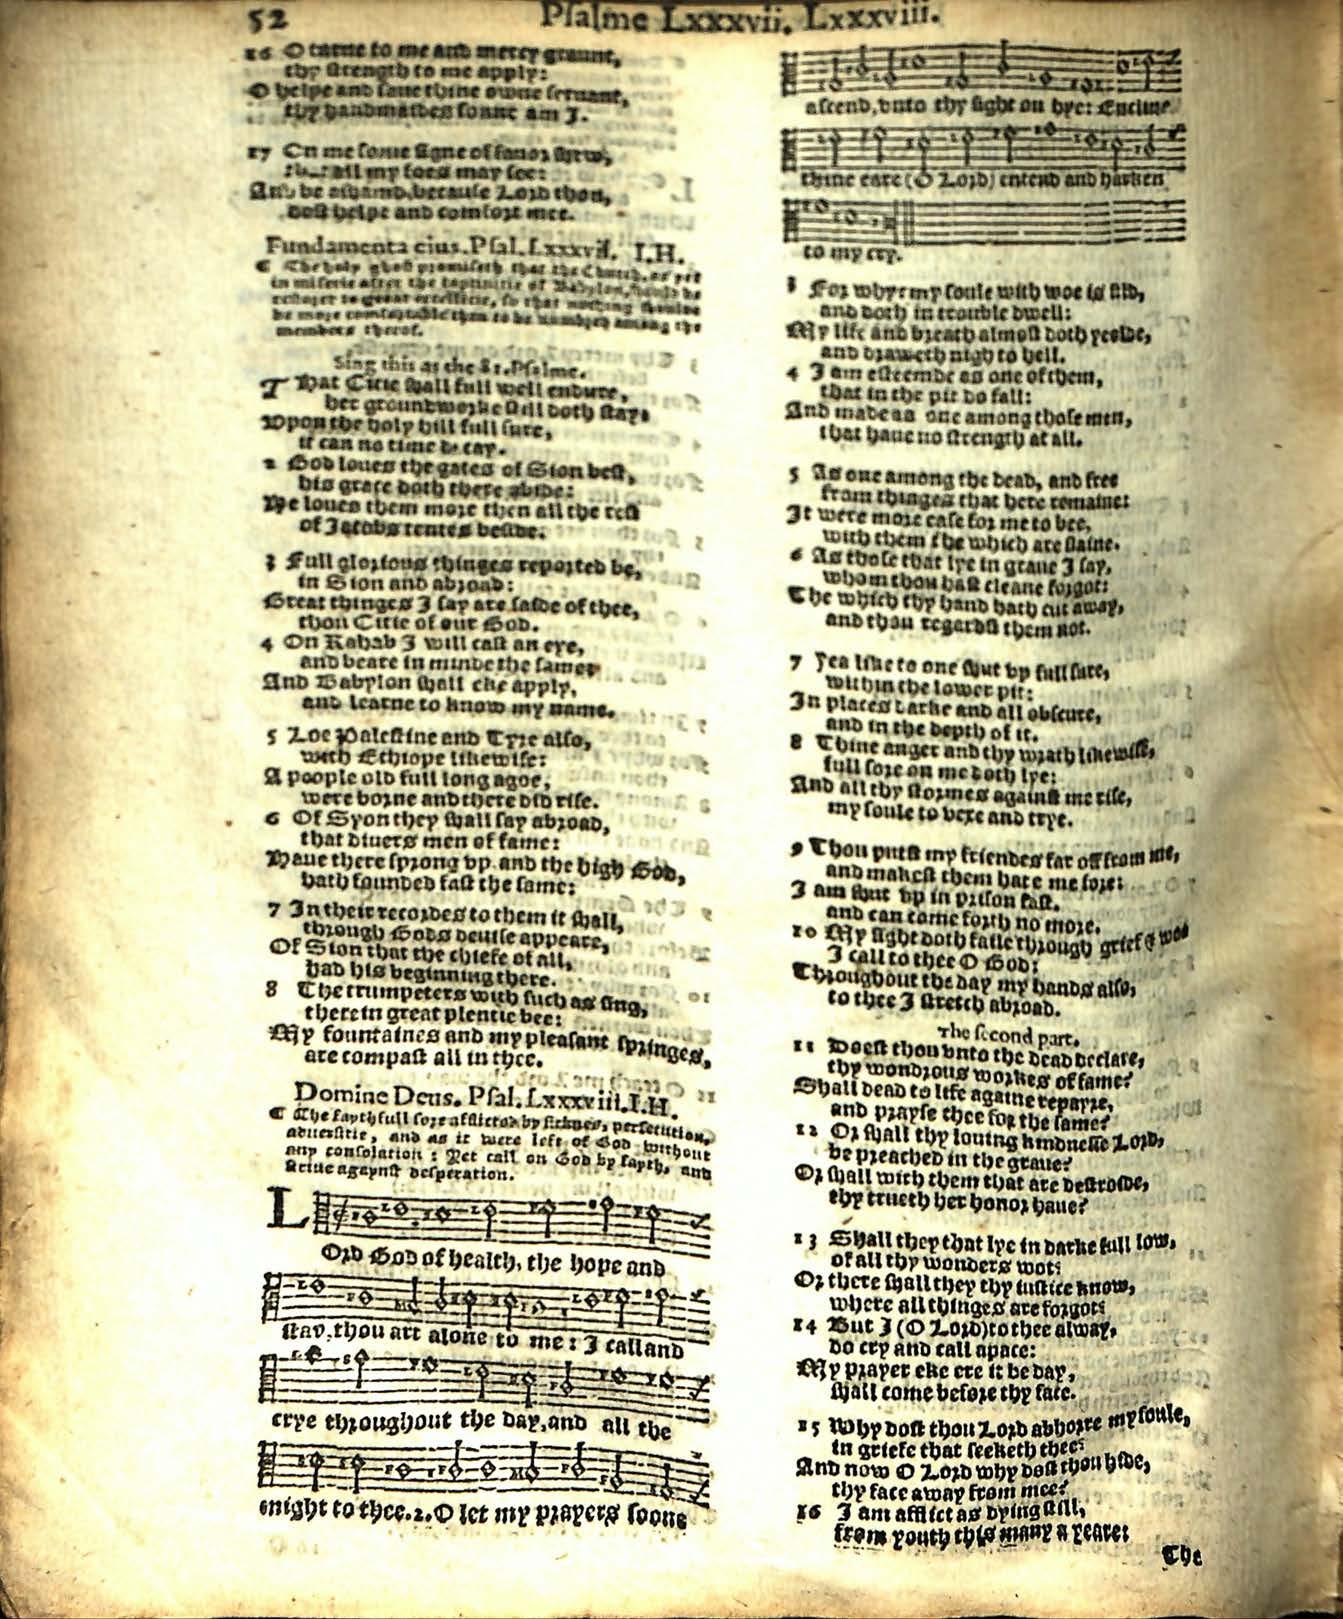 52
Psalme Lxxxvii. Lxxxviii.
16 O turne to me and mercy graunt,
thy strength to me apply:
O helpe and saue thine owne seruant,
thy handmaides sonne am I.
17 On me some signe of fauor shew,
that all my foes may see:
And be ashamd, because Lord thou,
dost helpe and comfort mee.
Fundamenta eius. Psal. Lxxxvii. I.H.
¶ The holy ghost promiseth that the Church, as yet
in miserie after the captiuitie of Babylon, should be
restored to great excellencie, so that nothing should
be more comfortable then to be numbred among the
members therof.
Sing this as the 81. Psalme.
THat Citie shall full well endure,
her groundworke still doth stay:
Vpon the holy hill full sure,
it can no time decay.
2 God loues the gates of Sion best,
his grace doth there abide:
He loues them more then all the rest
of Iacobs tentes beside.
3 Full glorious thinges reported be,
in Sion and abroad:
Great thinges I say are saide of thee,
thou Citie of our God.
4 On Rahab I will cast an eye,
and beare in minde the same,
And Babylon shall eke apply,
and learne to know my name.
5 Loe Palestine and Tyre also,
with Ethiope likewise:
A people old full long agoe,
were borne and there did rise.
6 Of Syon they shall say abroad,
that diuers men of fame:
Haue there sprong vp, and the high God,
hath founded fast the same:
7 In their recordes to them it shall,
through Gods deuise appeare,
Of Sion that the chiefe of all,
had his beginning there.
8 The trumpeters with such as sing,
therein great plentie bee:
My fountaines and my pleasant springes,
are compast all in thee.
Domine Deus. Psal. Lxxxviii. I.H.
¶ The faythfull sore afflicted by sicknes, persecution,
aduersitie, and as it were left of God without
any consolation: Yet call on God by fayth, and
striue agaynst desperation.
LOrd God of health, the hope and
stay, thou art alone to me: I call and
crye throughout the day, and all the
night to thee. 2. O let my prayers soone
ascend, vnto thy sight on hye: Encline
thine eare (O Lord) entend and harken
to my cry.
3 For why: my soule with woe is fild,
and doth in trouble dwell:
My life and breath almost doth yeelde,
and draweth nigh to hell.
4 I am esteemde as one of them,
that in the pit do fall:
And made as one among those men,
that haue no strength at all.
5 As one among the dead, and free
from thinges that here remaine:
It were more ease for me to bee,
with them the which are slaine.
6 As those that lye in graue I say,
whom thou hast cleane forgot:
The which thy hand hath cut away,
and thou regardst them not.
7 Yea like to one shut vp full sure,
within the lower pit:
In places darke and all obscure,
and in the depth of it.
8 Thine anger and thy wrath likewise,
full sore on me doth lye:
And all thy stormes against me rise,
my soule to vexe and trye.
9 Thou putst my friendes far off from me,
and makest them hate me sore:
I am shut vp in prison fast,
and can come forth no more.
10 My sight doth faile through grief & woe
I call to thee O God:
Throughout the day my hands also,
to thee I stretch abroad.
The second part.
11 Doest thou vnto the dead declare,
thy wondrous workes of fame?
Shall dead to life againe repayre,
and prayse thee for the same?
12 Or shall thy louing kindnesse Lord,
be preached in the graue?
Or shall with them that are destroide,
thy trueth her honor haue?
13 Shall they that lye in darke full low,
of all thy wonders wot?
Or there shall they thy iustice know,
where all thinges are forgot?
14 But I (O Lord) to thee alway,
do cry and call apace:
My prayer eke ere it be day,
shall come before thy face.
15 Why dost thou Lord abhorre my soule,
in griefe that seeketh thee?
And now O Lord why dost thou hide,
thy face away from mee?
16 I am afflict as dying still,
from youth this many a yeare:
The